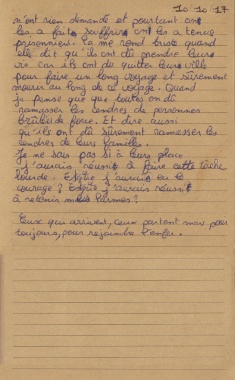 10.10.17
n'ont rien demandé et pourtant on
les a faits souffrir ont les a tenus
prisonniers. Ça me rend triste quand
elle dit qu'ils ont dû prendre leurs
vie car ils ont dû quitter leurs ville
pour faire un long voyage et sûrement
mourir au long de ce voyage. Quand
je pense que que toutes ont dû
ramasser les cendres de personnes
brûlés de force. Et dire aussi
qu'ils ont dû sûrement ramasser les
cendres de leurs familles.
Je ne sais pas si à leurs place
j'aurais réussit à faire cette tâche
lourde. Est-ce j'aurais eu le
courage? Est-ce j'aurais réussit
à retenir mes larmes?
Ceux qui arrivent, ceux partent mais pour
toujours, pour rejoindre l'enfer.